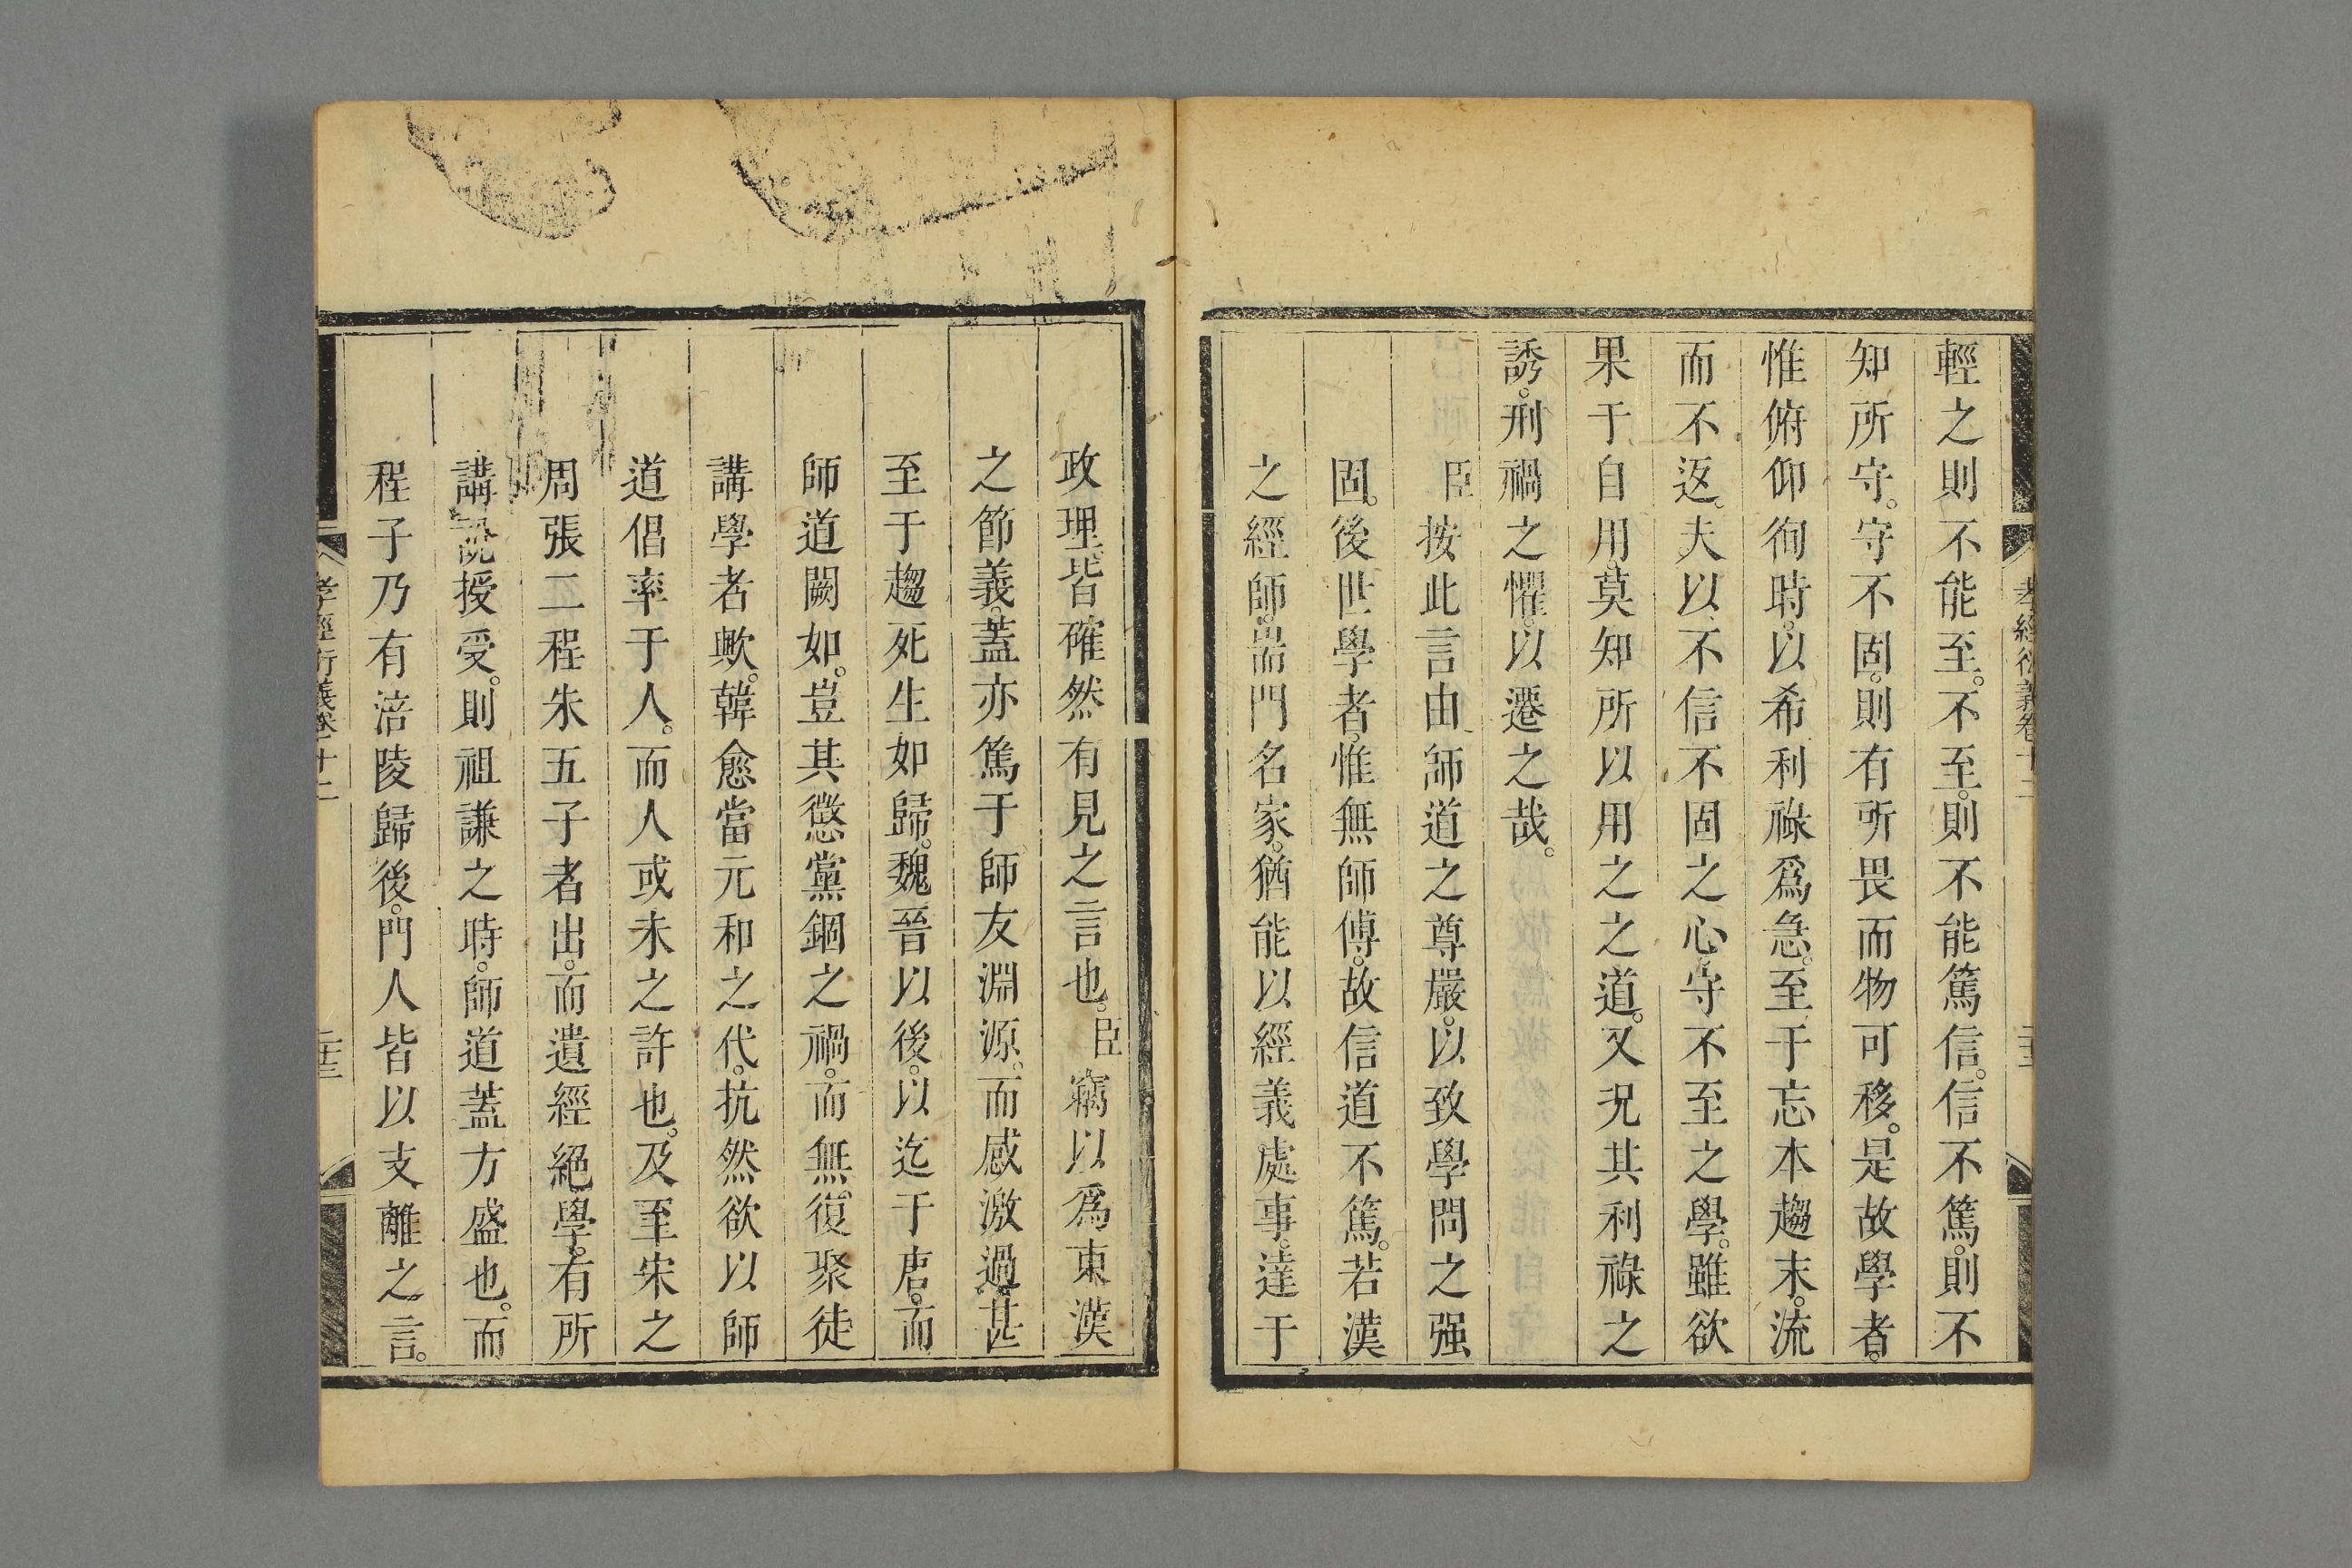 輕之則不能至。不至。則不能篤信。信不篤。則不
知所守。守不固。則有所畏而物可移。是故學者。
惟俯仰徇時。以希利祿爲急。至于忘本趨末。流
而不返。夫以不信不固之心。守不至之學。雖欲
果于自用。莫知所以用之之道。又況其利祿之
誘。刑禍之懼。以遷之哉。
臣按此言由師道之尊嚴。以致學問之强
固。後世學者。惟無師傅。故信道不篤。若漢
之經師。耑門名家。猶能以經義處事。達于
孝經衍義卷十二
政理。皆確然有見之言也。臣竊以爲東漢
之節義。蓋亦篤于師友淵源。而感激過甚
至于趨死生如歸。魏晉以後。以迄于唐。而
師道闕如。豈其懲黨錮之禍。而無復聚徒
講學者歟。韓愈當元和之代。抗然欲以師
道倡率于人。而人或未之許也。及至宋之
周張二程朱五子者出。而遺經絕學。有所
講說授受。則祖謙之時。師道蓋方盛也。而
程子乃有涪陵歸後。門人皆以支離之言。
孝經衍義卷十二